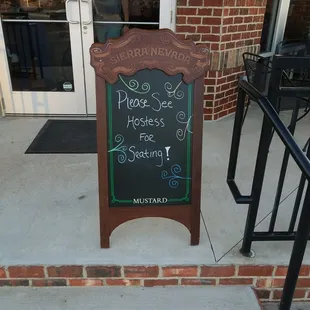 SIERRA NEVADA
Please See
Hostess
For
Seating!
MUSTARD